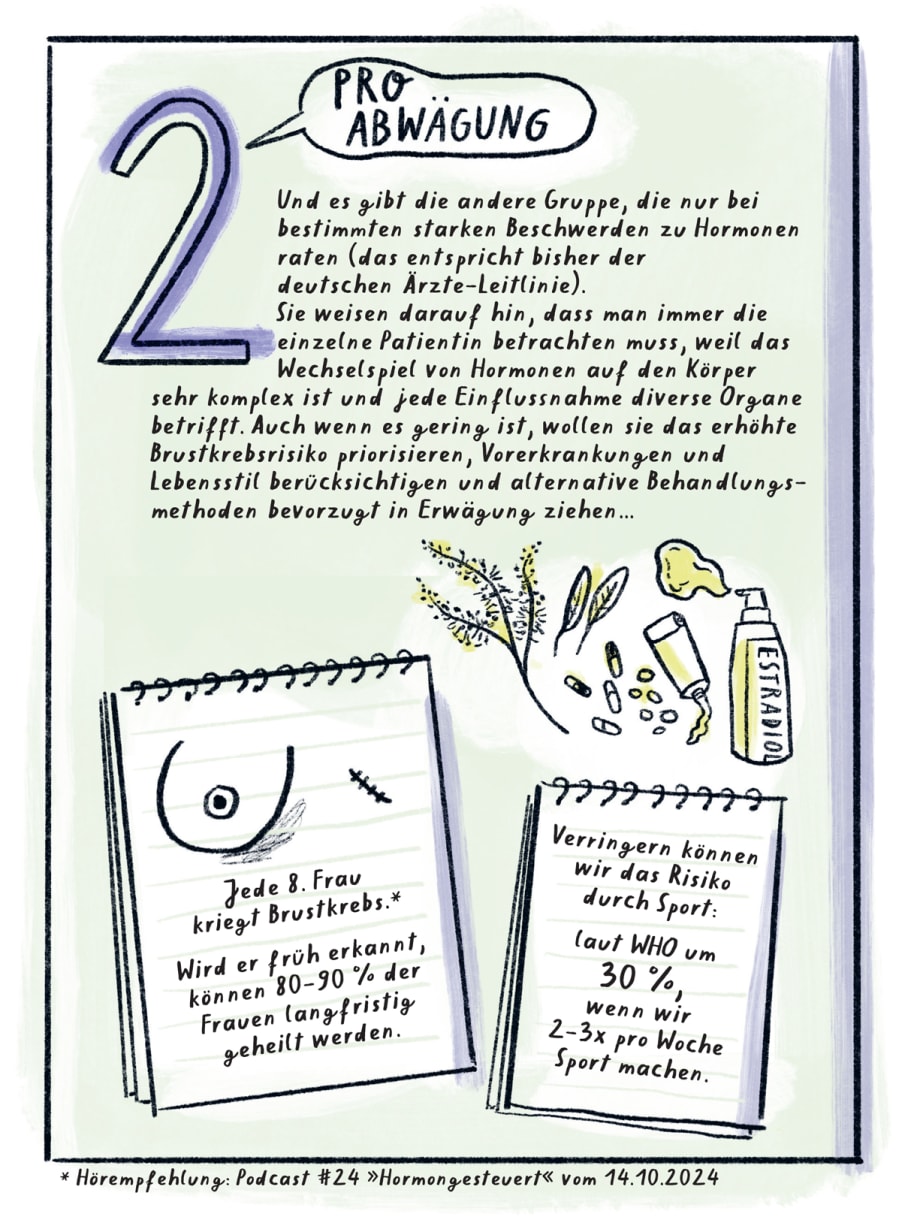 2
PRO
ABWÄGUNG
Und es gibt die andere Gruppe, die nur bei
bestimmten starken Beschwerden zu Hormonen
raten (das entspricht bisher der
deutschen Ärzte-Leitlinie).
Sie weisen darauf hin, dass man immer die
einzelne Patientin betrachten muss, weil das
Wechselspiel von Hormonen auf den Körper
sehr komplex ist und jede Einflussnahme diverse Organe
betrifft. Auch wenn es gering ist, wollen sie das erhöhte
Brustkrebsrisiko priorisieren, Vorerkrankungen und
Lebensstil berücksichtigen und alternative Behandlungs-
methoden bevorzugt in Erwägung ziehen...
ESTRADIOL
Jede 8. Frau
kriegt Brustkrebs.*
Wird er früh erkannt,
können 80-90 % der
Frauen langfristig
geheilt werden.
Verringern können
wir das Risiko
durch Sport:
laut WHO um
30 %,
wenn wir
2-3x pro Woche
Sport machen.
* Hörempfehlung: Podcast #24 »Hormongesteuert« vom 14.10.2024